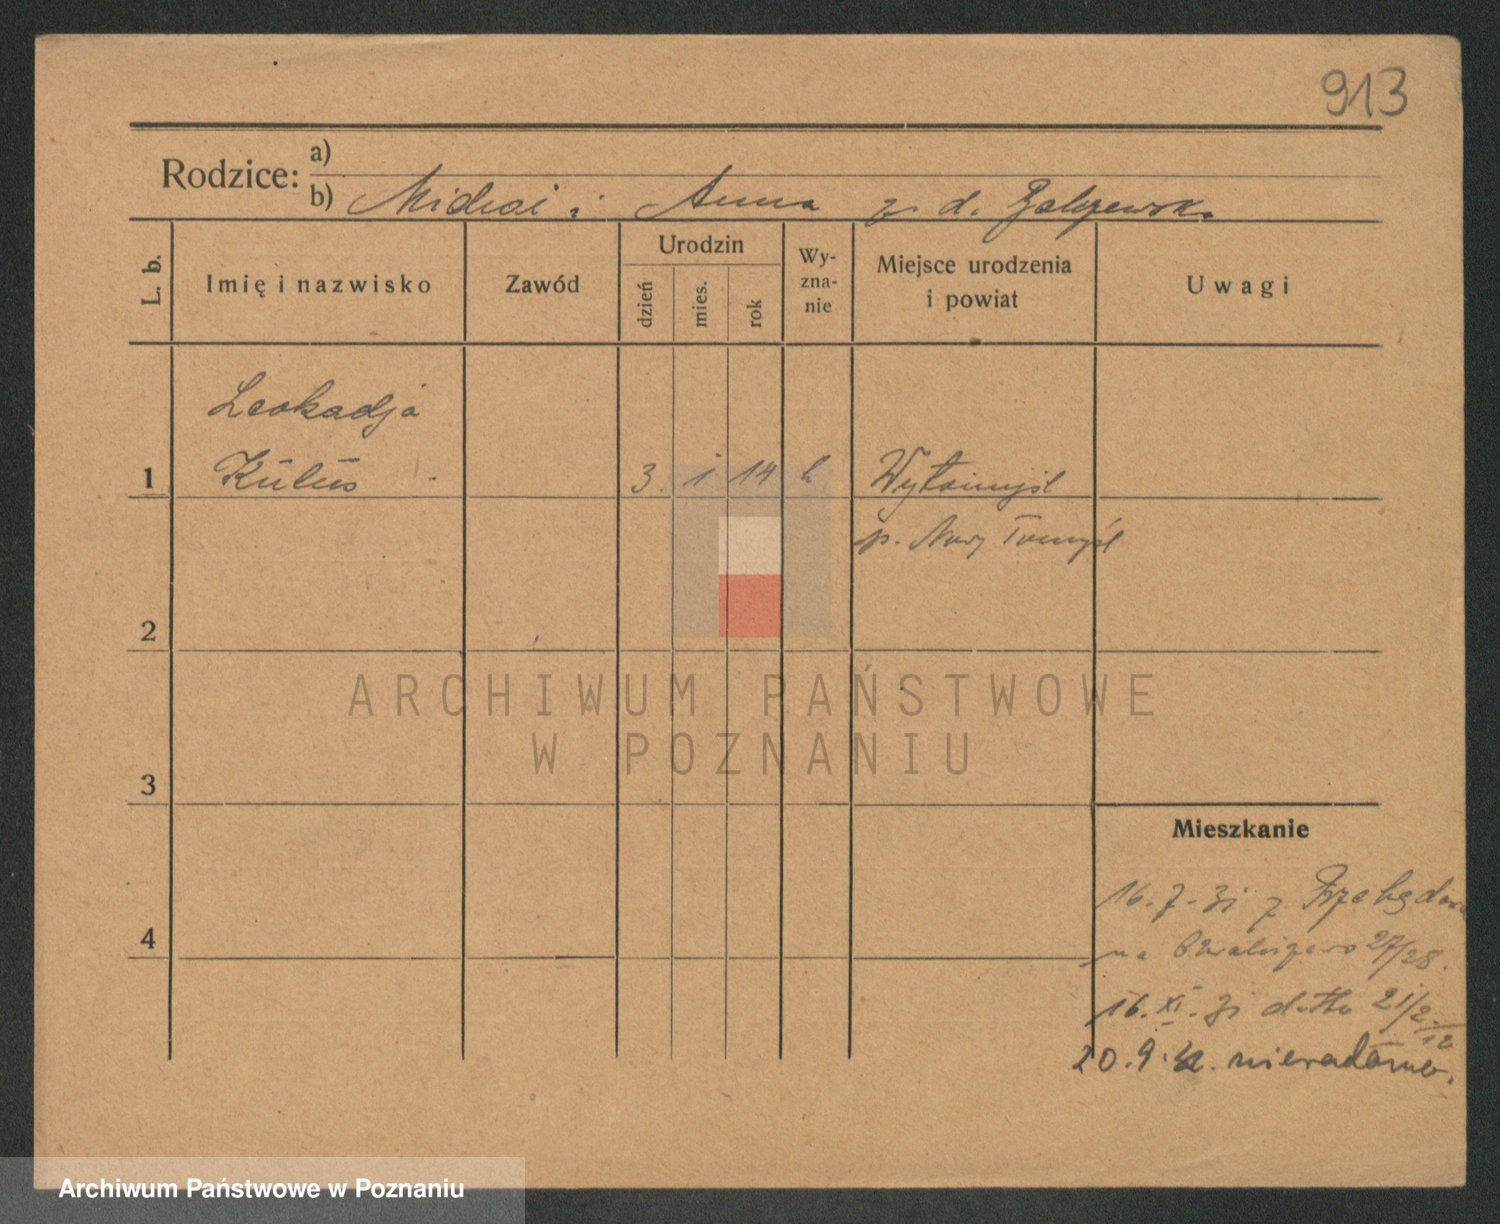 913
Rodzice:
a)
b) Michał i Anna z d.
L. b.
Imię i nazwisko
Zawód
Urodzin
dzień
mies.
rok
Wy-
zna-
nie
Miejsce urodzenia
i powiat
Uwagi
Leokadja
1 Kulus 3. 1 14 k Wytomyśl
p. Nowy Tomyśl
2
ARCHIWUM PAŃSTWOWE
W POZNANIU
3
Mieszkanie
16. 7. 31 z
4
na 27/28.
16. XI. 31 dtto 21/2.
12
20. 9. niewiadomo.
Archiwum Państwowe w Poznaniu